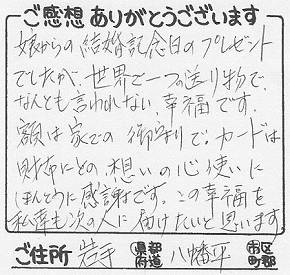 ご感想ありがとうございます
娘からの結婚記念日のプレゼント
でしたが、世界で一つの送り物で、
なんとも言われない幸福です。
額は家での御守りで。カードは
財布にとの想いの心使いに
ほんとうに感謝です。この幸福を
私達も次の人に届けたいと思います
ご住所 岩手 都道府県 八幡平 市区町郡